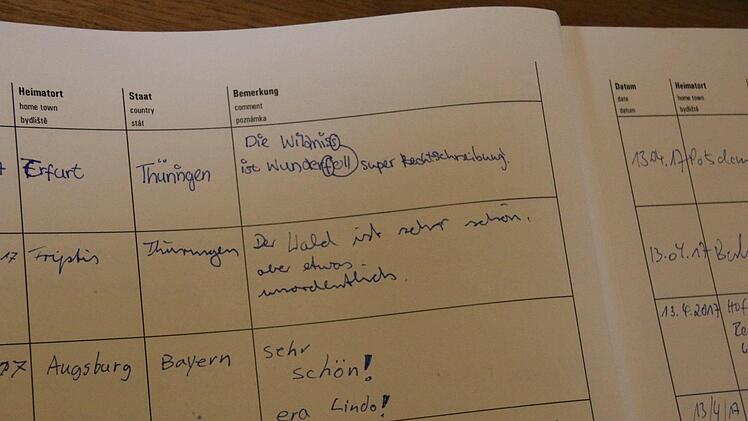 Heimatort
home town
bydliště
Staat
country
stát
Bemerkung
comment
poznámka
7 Erfurt
Thüringen
Die Wildniss
ist wunderfoll super Rechtschreibung.
17 Triptis
Thüringen
Der Wald ist sehr schön,
aber etwas
unordentlich.
Augsburg
Bayern
sehr
schön!
era Lindo!
Datum
date
datum
Heimatort
home town
bydliště
13.04.17 Potsdam
13.04.17
13.4.2017 Hof
13/4/17